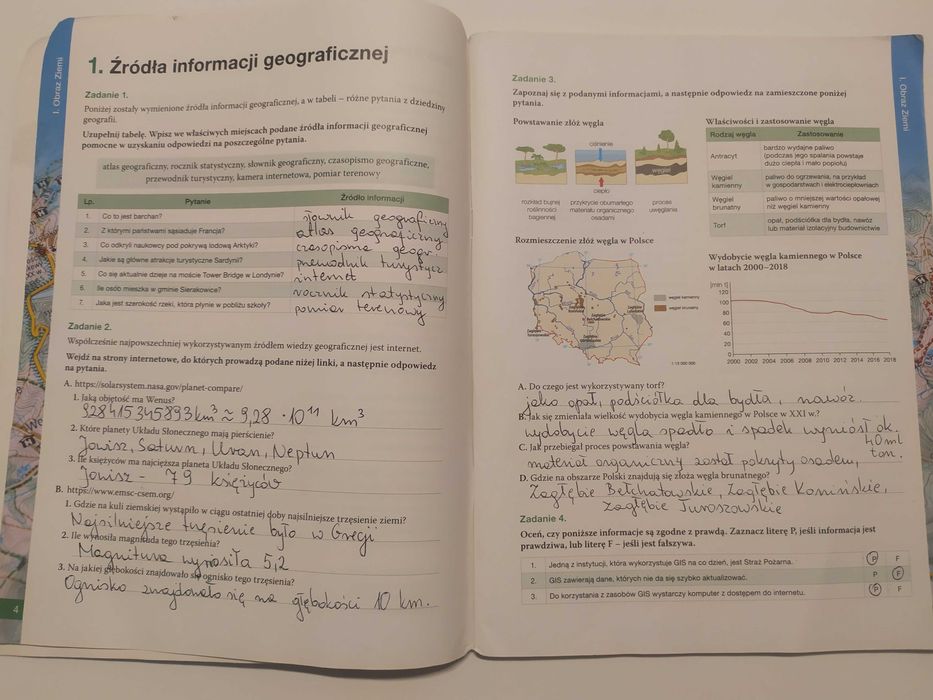 I. Obraz Ziemi
1. Źródła informacji geograficznej
Zadanie 1.
Poniżej zostały wymienione źródła informacji geograficznej, a w tabeli – różne pytania z dziedziny
geografii.
Uzupełnij tabelę. Wpisz we właściwych miejscach podane źródła informacji geograficznej
pomocne w uzyskaniu odpowiedzi na poszczególne pytania.
atlas geograficzny, rocznik statystyczny, słownik geograficzny, czasopismo geograficzne,
przewodnik turystyczny, kamera internetowa, pomiar terenowy
Lp. Pytanie Źródło informacji
1. Co to jest barchan? słownik geograficzny
2. Z którymi państwami sąsiaduje Francja? atlas geograficzny
3. Co odkryli naukowcy pod pokrywą lodową Arktyki? czasopisma geogr.
4. Jakie są główne atrakcje turystyczne Sardynii? przewodnik turystycz.
5. Co się aktualnie dzieje na moście Tower Bridge w Londynie? internet
6. Ile osób mieszka w gminie Sierakowice? rocznik statystyczny
7. Jaka jest szerokość rzeki, która płynie w pobliżu szkoły? pomiar terenowy
Zadanie 2.
Współcześnie najpowszechniej wykorzystywanym źródłem wiedzy geograficznej jest internet.
Wejdź na strony internetowe, do których prowadzą podane niżej linki, a następnie odpowiedz
na pytania.
A. https://solarsystem.nasa.gov/planet-compare/
1. Jaką objętość ma Wenus?
928415345893km³ ≈ 9,28 · 10¹¹ km³
2. Które planety Układu Słonecznego mają pierścienie?
Jowisz, Saturn, Uran, Neptun
3. Ile księżyców ma najcięższa planeta Układu Słonecznego?
Jowisz - 79 księżyców
B. https://www.emsc-csem.org/
1. Gdzie na kuli ziemskiej wystąpiło w ciągu ostatniej doby najsilniejsze trzęsienie ziemi?
Najsilniejsze trzęsienie było w Grecji
2. Ile wynosiła magnituda tego trzęsienia?
Magnituda wynosiła 5,2
3. Na jakiej głębokości znajdowało się ognisko tego trzęsienia?
Ognisko znajdowało się na głębokości 10 km.
4
I. Obraz Ziemi
Zadanie 3.
Zapoznaj się z podanymi informacjami, a następnie odpowiedz na zamieszczone poniżej
pytania.
Powstawanie złóż węgla
ciśnienie
węgiel
ciepło
rozkład bujnej
roślinności
bagiennej
przykrycie obumarłego
materiału organicznego
osadami
proces
uwęglania
Właściwości i zastosowanie węgla
Rodzaj węgla Zastosowanie
Antracyt bardzo wydajne paliwo
(podczas jego spalania powstaje
dużo ciepła i mało popiołu)
Węgiel
kamienny
paliwo do ogrzewania, na przykład
w gospodarstwach i elektrociepłowniach
Węgiel
brunatny
paliwo o mniejszej wartości opałowej
niż węgiel kamienny
Torf opał, podściółka dla bydła, nawóz
lub materiał izolacyjny budownictwie
Rozmieszczenie złóż węgla w Polsce
węgiel kamienny
węgiel brunatny
Wydobycie węgla kamiennego w Polsce
w latach 2000–2018
[mln t]
120
100
80
60
40
20
0
2000 2002 2004 2006 2008 2010 2012 2014 2016 2018
A. Do czego jest wykorzystywany torf?
jako opał, podściółka dla bydła, nawóz.
B. Jak się zmieniała wielkość wydobycia węgla kamiennego w Polsce w XXI w.?
wydobycie węgla spadło i spadek wyniósł ok.
40 ml
ton.
C. Jak przebiegał proces powstawania węgla?
materiał organiczny został pokryty osadem,
D. Gdzie na obszarze Polski znajdują się złoża węgla brunatnego?
Zagłębie Bełchatowskie, Zagłębie Konińskie,
Zagłębie Turoszowskie
Zadanie 4.
Oceń, czy poniższe informacje są zgodne z prawdą. Zaznacz literę P, jeśli informacja jest
prawdziwa, lub literę F – jeśli jest fałszywa.
1. Jedną z instytucji, która wykorzystuje GIS na co dzień, jest Straż Pożarna. P F
2. GIS zawierają dane, których nie da się szybko aktualizować. P F
3. Do korzystania z zasobów GIS wystarczy komputer z dostępem do internetu. P F